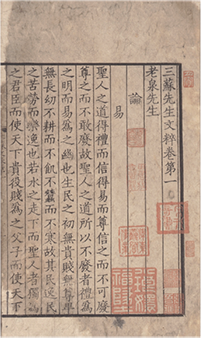 三蘇先生文粹卷第一
老泉先生
論
易
聖人之道得禮而信得易而尊信之而不可廢
尊之而不敢廢故聖人之道所以不廢者禮為
之明而易為之幽也生民之初無貴賤無尊卑
無長幼不耕而不飢不蠶而不寒故其民逸民
之苦勞而樂逸也若水之走下而聖人者獨為
之君臣而使天下貴役賤為之父子而使天下